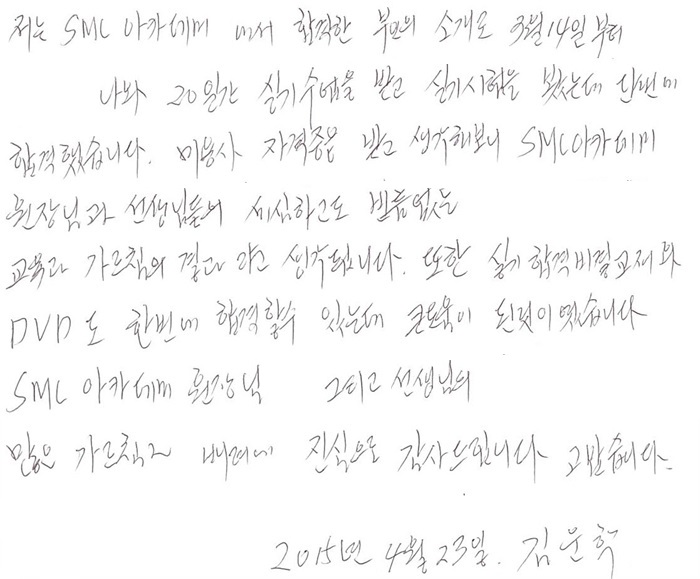 저는 SMC 아카데미 에서 합격한 부인의 소개로 3월14일 부터
나와 20일간 실기수업을 받고 실기시험을 봤는데 단번에
합격했습니다. 미용사 자격증을 받고 생각해보니 SMC아카데미
원장님과 선생님들의 세심하고도 빈틈없는
교육과 가르침의 결과 라고 생각됩니다. 또한 실기 합격비결교재와
DVD도 한번에 합격할수 있는데 큰도움이 된것이였습니다
SMC 아카데미 원장님 그리고 선생님의
많은 가르침과 배려에 진심으로 감사드립니다 고맙습니다.
2015년 4월 23일. 김윤학